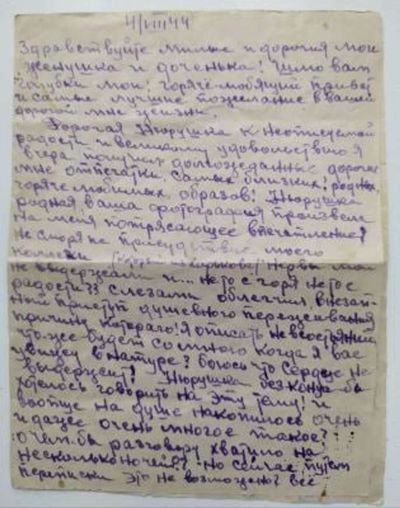 4/VIII 44
Здравствуйте милые и дорогия мои
женушка и доченька! Шлю вам
голубки мои! горяче-любящий привет
и самые лучшие пожелание в вашей
дорогой мне жизни.
Дорогая Нюрушка к неописуемой
радости и великому удовольствию я
вчера получил долгожеданные дорогие
мне отпечатки самых близких, родных,
горяче любимых образов! Нюрушка
родная ваша фотография произвела
на меня потрясающее впечатление!
Не сморя на присудствие моего
коллеги Нервы мои
не выдержали и... не то с горя не то с
радости?? слезами облегчил внезап-
ный приступ душевного переживания
причину котераго! Я описать не в состоянии
что же будет со мною когда я вас
увижу в натуре? боюсь что сердце не
выдержет! Нюрушка без конца бы
хотелось говорить на эту тему! и
вообще на душе накопилось очень
и даже очень многое такое?
о чем бы разговору хватило на
несколько ночей? но сейчас путем
переписки это не возможно! все